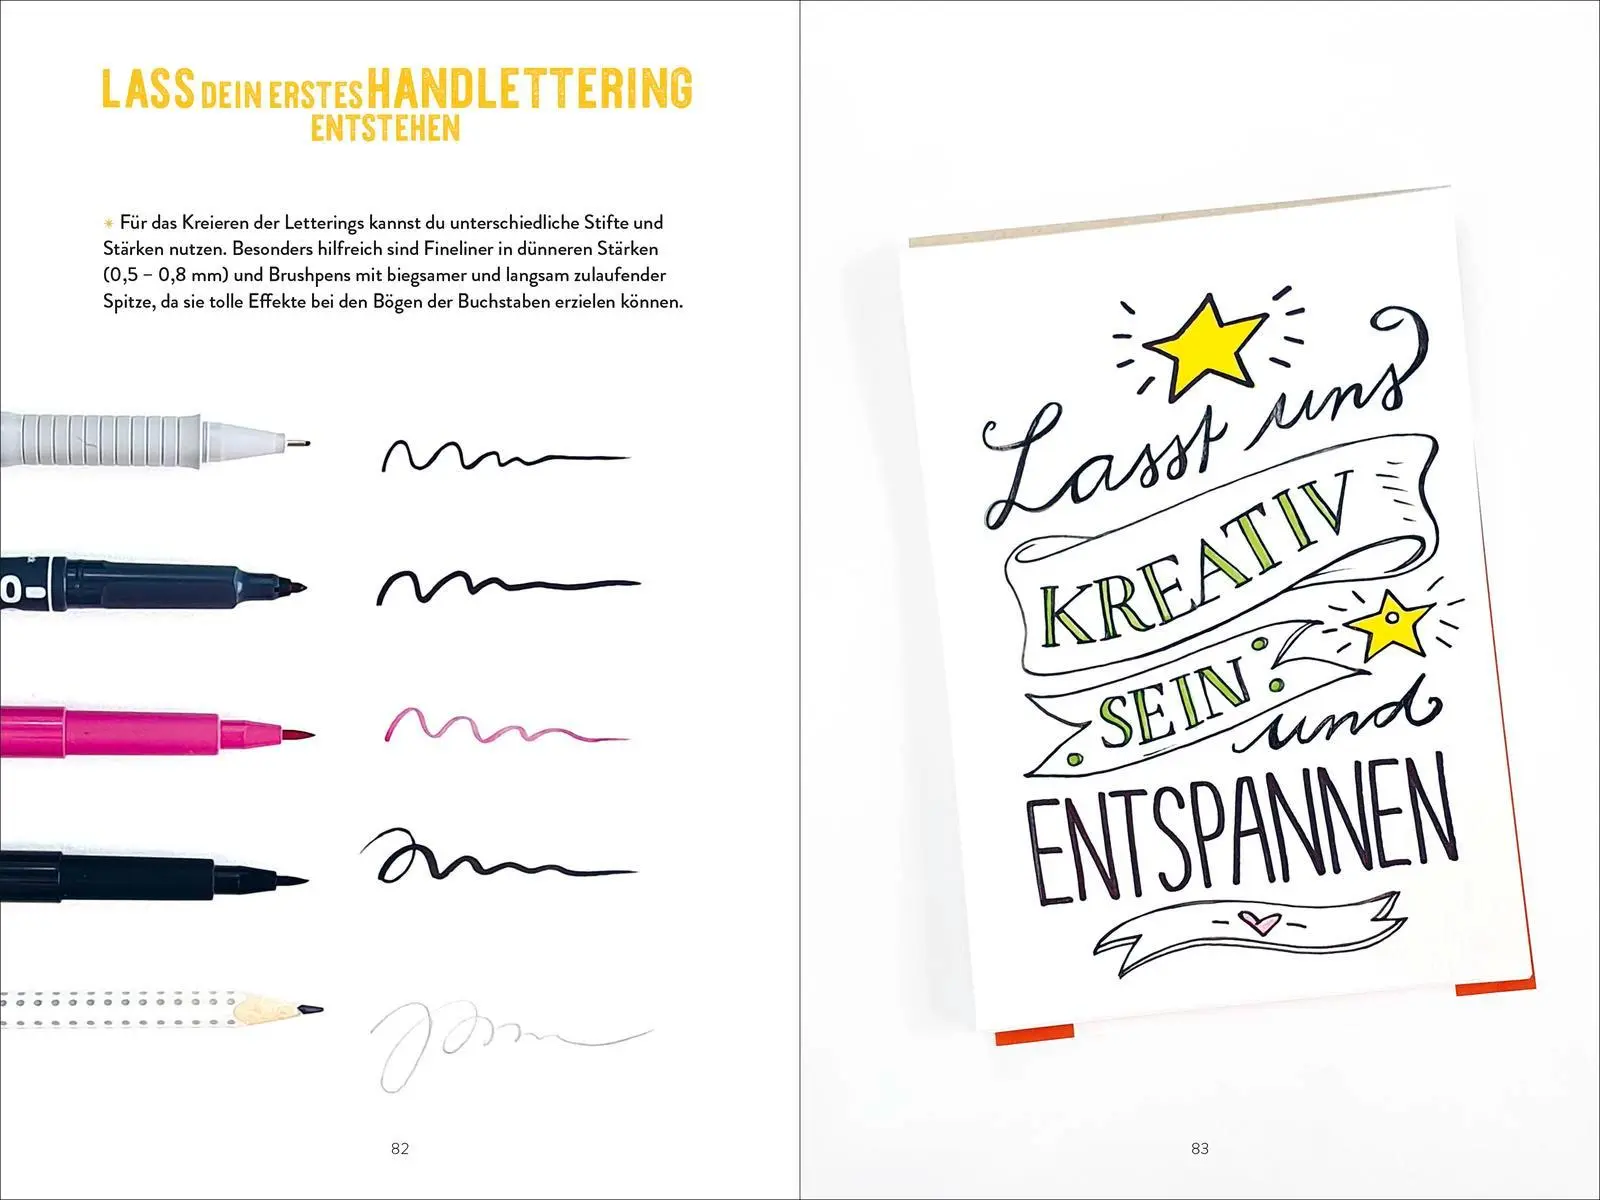 LASS DEIN ERSTES HANDLETTERING
ENTSTEHEN
✴ Für das Kreieren der Letterings kannst du unterschiedliche Stifte und
Stärken nutzen. Besonders hilfreich sind Fineliner in dünneren Stärken
(0,5 – 0,8 mm) und Brushpens mit biegsamer und langsam zulaufender
Spitze, da sie tolle Effekte bei den Bögen der Buchstaben erzielen können.
82
Lasst uns
KREATIV
SEIN
und
ENTSPANNEN
83